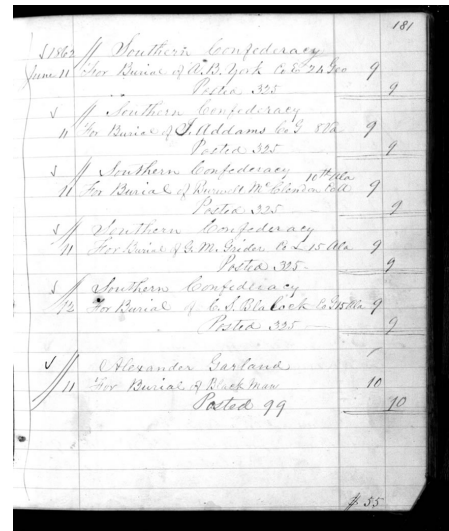 181
1862 // Southern Confederacy
June 11 For Burial of A. B. York Co E 24 Geo 9
" Posted 325 9
// Southern Confederacy
11 For Burial of J. Addams Co G 8 Va 9
Posted 325 9
// Southern Confederacy 10th Ala
11 For Burial of Burwell McClendon Co A 9
Posted 325 9
// Southern Confederacy
11 For Burial of G. M. Grider Co L 15 Ala 9
Posted 325 9
// Southern Confederacy
12 For Burial of C. S. Blalock Co G 15 Ala 9
Posted 325 9
// Alexander Garland
11 For Burial of Black Man 10
Posted 99 10
$ 55